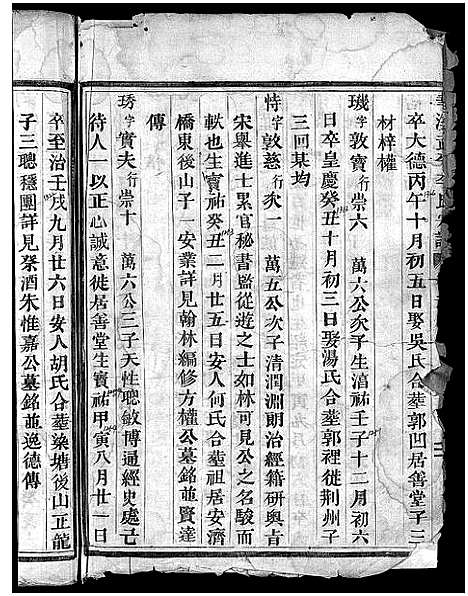 卒大德丙午十月初五日娶吳氏合塟郭凹居善堂子三
材梓權
璣字敦寶行崇六 萬六公次子生淳祐壬子十二月初六
日卒皇慶癸丑十月初三日娶湯氏合塟郭裡徙荆州子
三回某均
恃字敦慈行永一 萬五公次子清潤淵朗治經籍研奥肯
宋舉進士累官秘書監從遊之士如林可見公之名駿而
軼也生寶祐癸丑二月廿五日安人何氏合塟祖居安濟
橋東後山子一安業詳見翰林編修方權公墓銘並賢達
傳
琇字實夫行崇十 萬六公三子天性聰敏博通經史處己
待人一以正心誠意徙居善堂生寶祐甲寅八月廿一日
卒至治壬戌九月廿六日安人胡氏合塟築塘後山正龍
子三聰穩團詳見祭酒朱惟嘉公墓銘並逸德傳